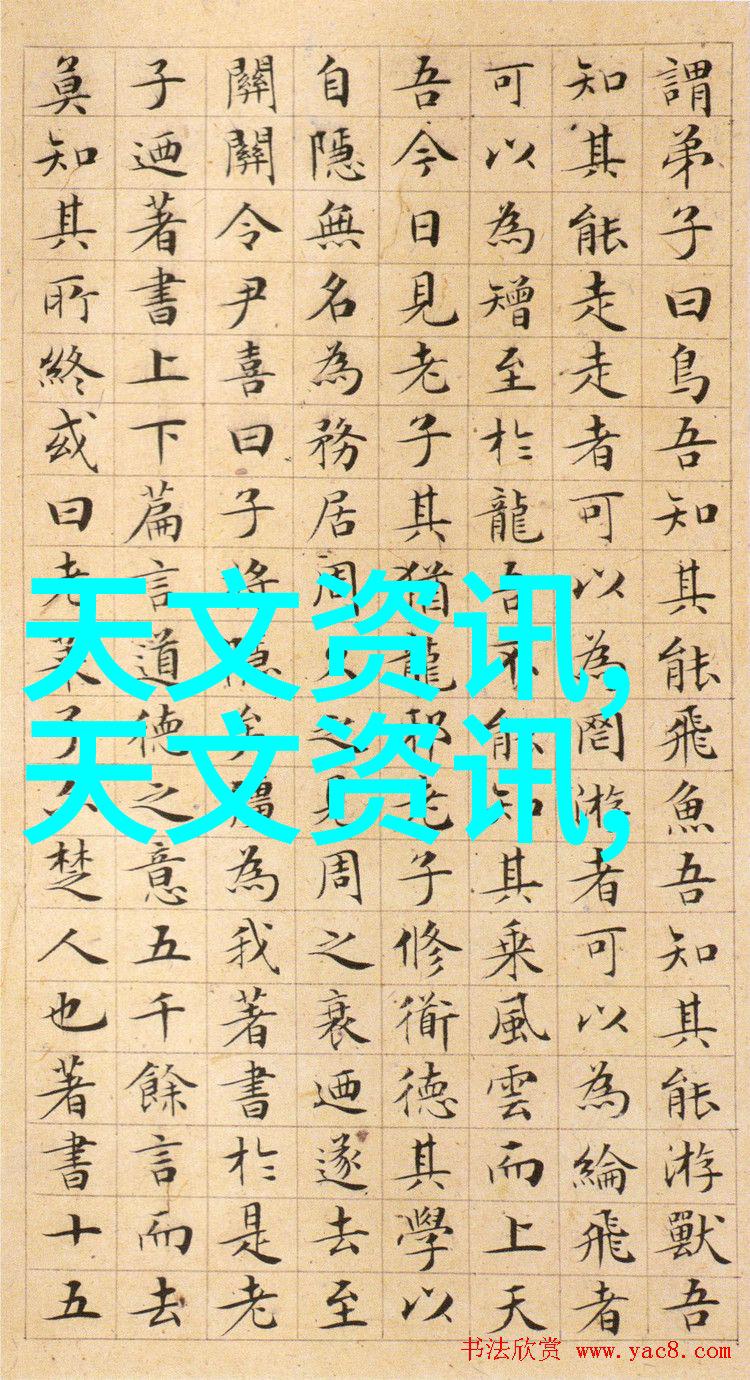 謂弟子曰鳥吾知其能飛魚吾知其能游獸吾
知其能走走者可以為罔游者可以為綸飛者
可以為矰至於龍吾不能知其乘風雲而上天
吾今日見老子其猶龍邪老子修衜德其學以
自隱無名為務居周久之見周之衰迺遂去至
關關令尹喜曰子將隱矣彊為我著書於是老
子迺著書上下篇言道德之意五千餘言而去
莫知其所終或曰老萊子亦楚人也著書十五
天文资讯,
天文资讯,
书法欣赏 www.yac8.com